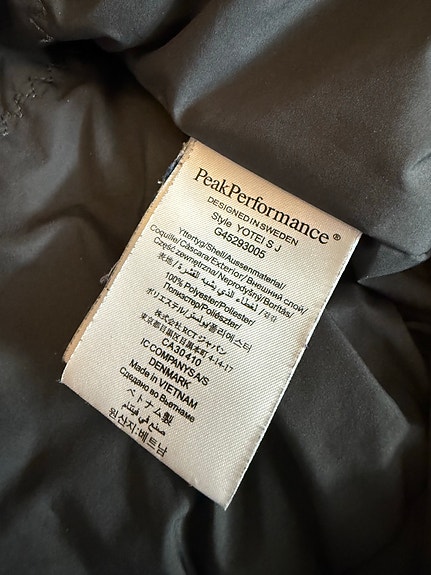 PeakPerformance®
DESIGNED IN SWEDEN
Style YOTEI S J
G45293005
Yttertyg/Shell/Aussenmaterial/
Coquille/Cáscara/Exterior/Внешний слой/
Część zewnętrzna/Neprobyšný/Borítás/
表地/الغطاء الذي يشبه القشرة/겉감
100% Polyester/Poliester/
ポリエステル/بوليستر/폴리에스터/
Полиэстер/Poliészter/
株式会社 ICTジャパン
東京都目黒区目黒本町 4-14-17
CA30410
IC COMPANYS A/S
DENMARK
Made in VIETNAM
Сделано во Вьетнаме
ベトナム製
صنع في فيتنام
원산지:베트남